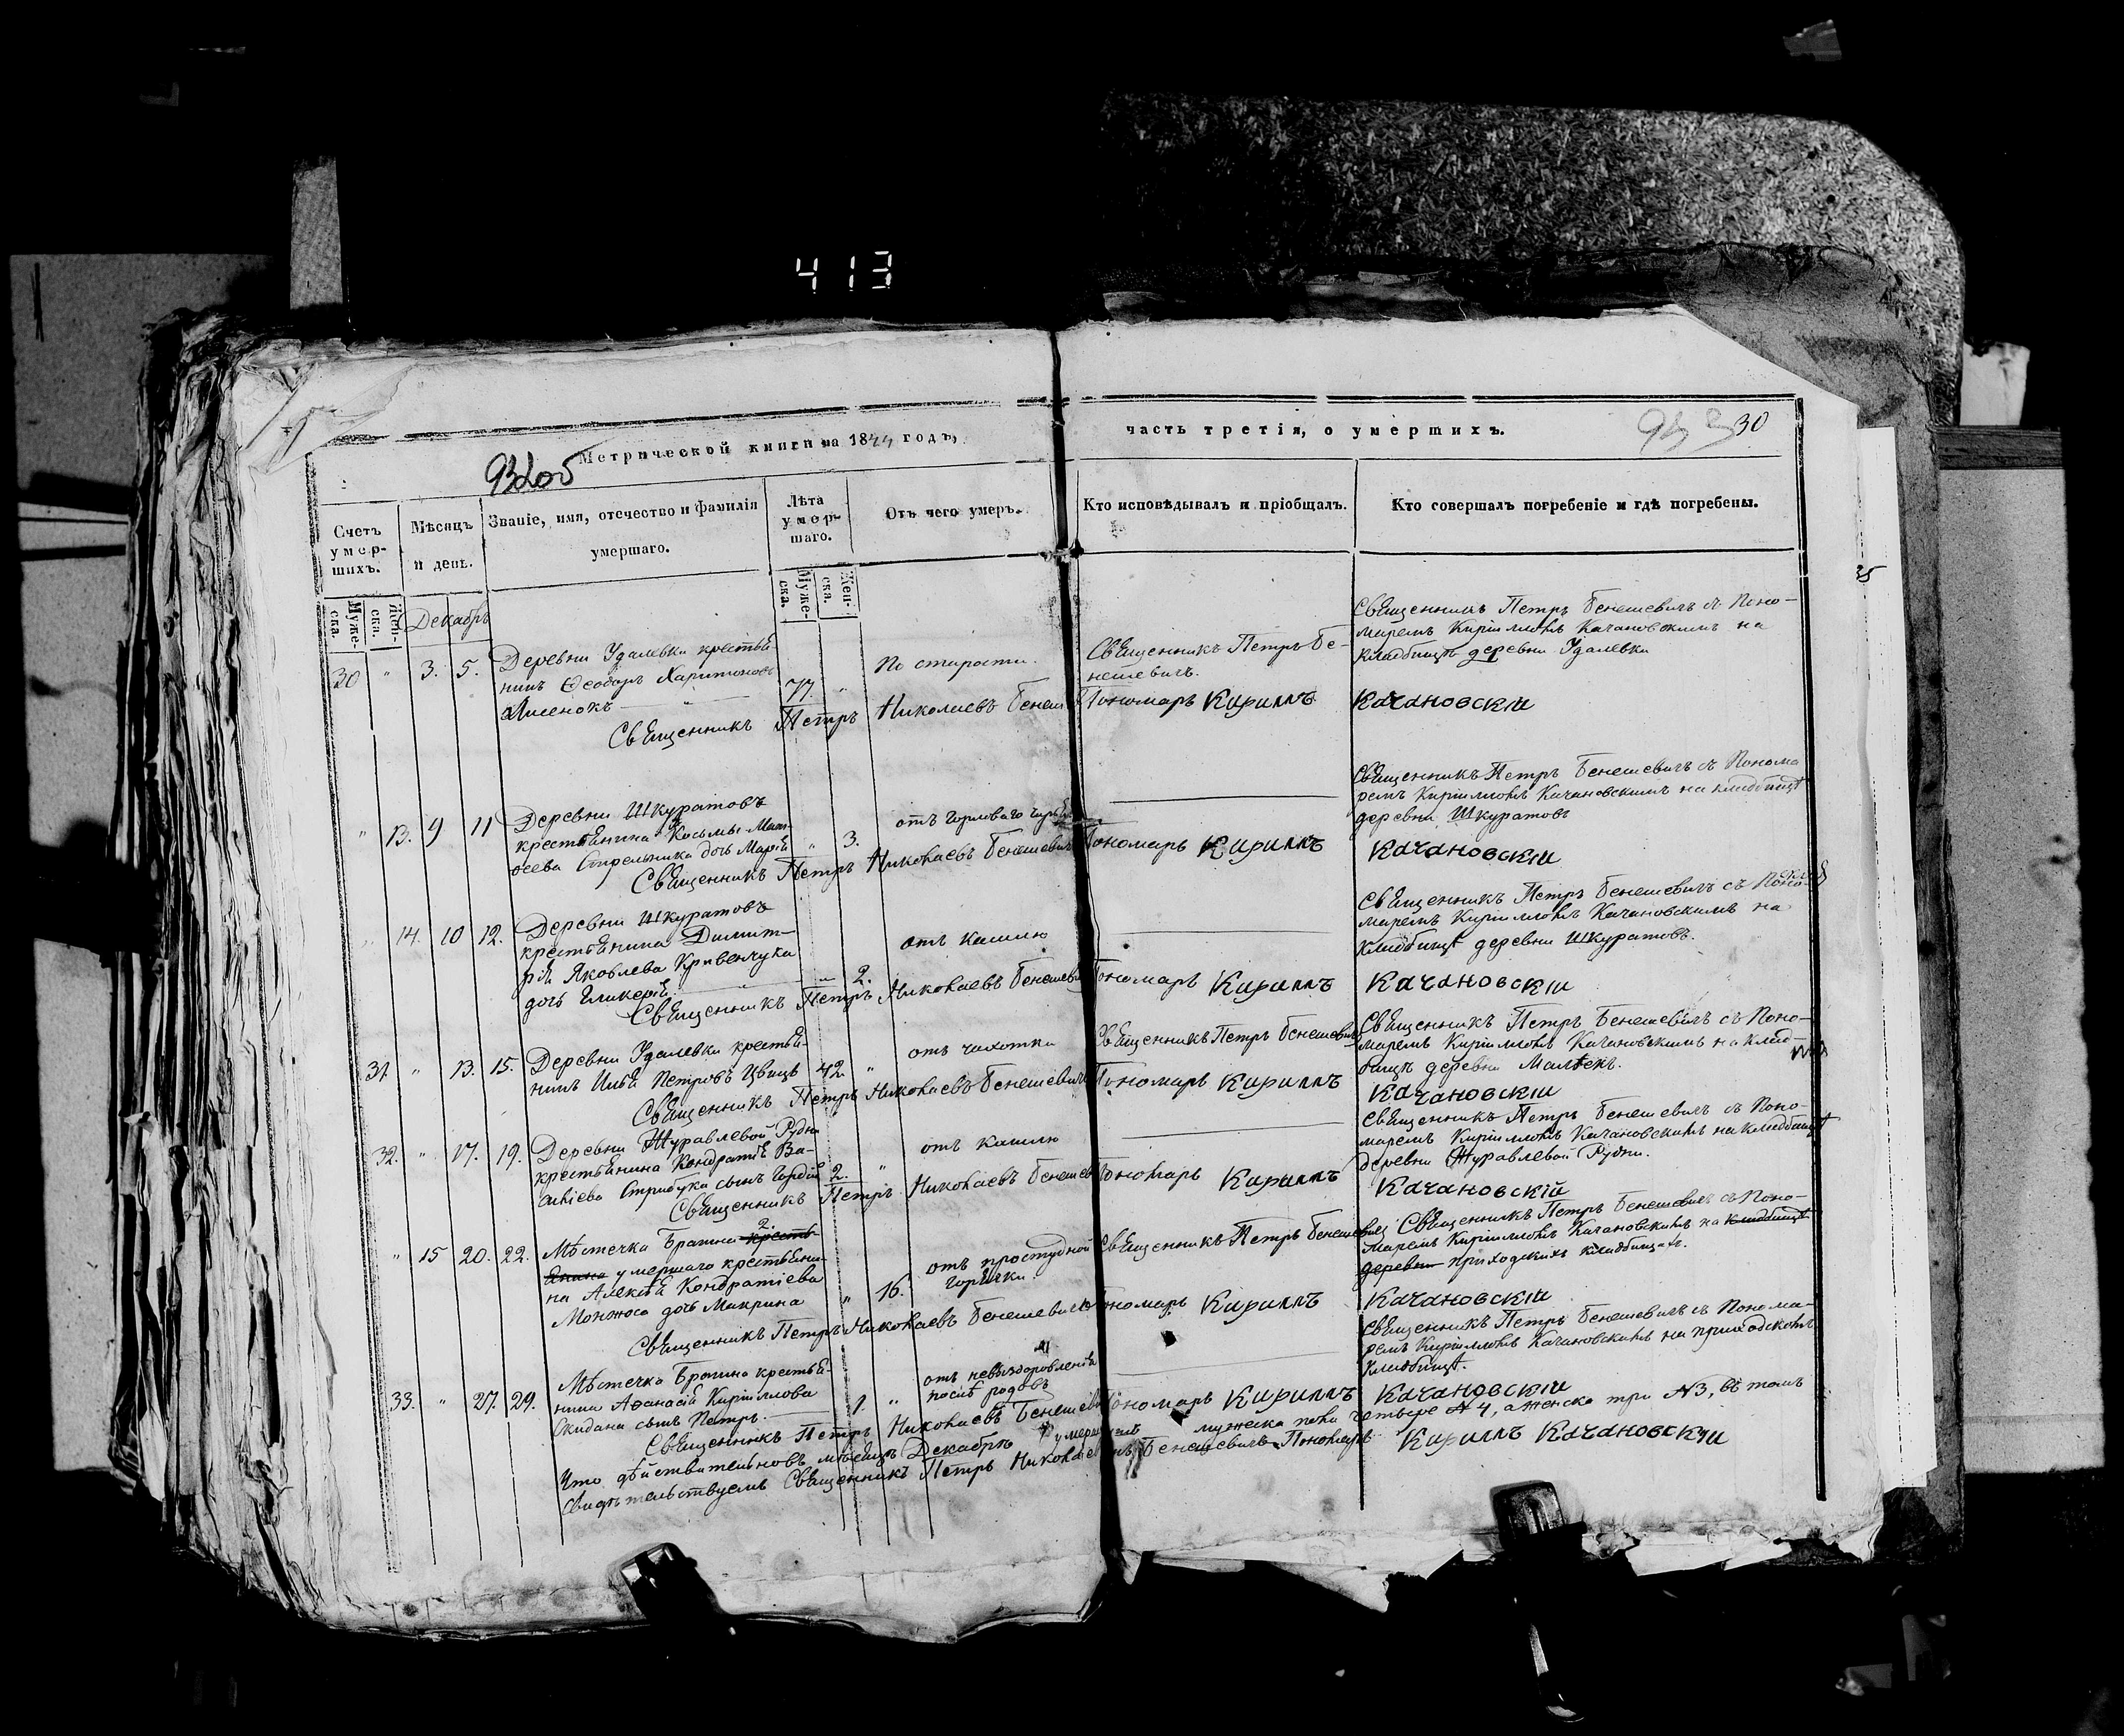 413
Метрической книги на 1844 годъ,
часть третія, о умершихъ.
30
93 об
Счетъ умер-шихъ.
Мѣсяцъ и день.
Званіе, имя, отечество и фамилія умершаго.
Лѣта умер-шаго.
Отъ чего умеръ.
Кто исповѣдывалъ и пріобщалъ.
Кто совершалъ погребеніе и гдѣ погребены.
Муже-ска.
Жен-ска.
Декабрь
Муже-ска.
Жен-ска.
30 " 3. 5.
Деревни Удалевки крестья-
нинъ Ѳеодоръ Харитоновъ
Лисенокъ
77. "
По старости.
Священникъ Петръ Бе-
нешевичъ.
Священникъ Петръ Бенешевичъ съ Поно-
маремъ Кирилломъ Качановскимъ на
кладбищѣ деревни Удалевки
Священникъ Петръ Николаевъ Бенеш Пономарь Кириллъ Качановскій
" 13. 9 11
Деревни Шкуратовъ
крестьянина Косьмы Мат-
ѳеева Стрельника дочь Марія
" 3.
отъ горловаго
Священникъ Петръ Бенешевичъ съ Понома
ремъ Кирилломъ Качановскимъ на кладбищѣ
деревни Шкуратовъ
Священникъ Петръ Николаевъ Бенешевичъ Пономарь Кириллъ Качановскій
" 14. 10 12.
Деревни Шкуратовъ
крестьянина Димит-
рія Яковлева Кривенчука
дочь Гликерія
2.
отъ кашлю
Священникъ Петръ Бенешевичъ съ Поно-
маремъ Кирилломъ Качановскимъ на
кладбищѣ деревни Шкуратовъ.
Священникъ Петръ Николаевъ Бенешевичъ Пономарь Кириллъ Качановскій
31. " 13. 15.
Деревни Удалевки крестья-
нинъ Илья Петровъ Цвицъ
42. "
отъ чахотки
Священникъ Петръ Бенешевичъ
Священникъ Петръ Бенешевичъ съ Поно-
маремъ Кирилломъ Качановскимъ на клад-
бищѣ деревни Малѣекъ.
Священникъ Петръ Николаевъ Бенешевичъ Пономарь Кириллъ Качановскій
32. " 17. 19.
Деревни Журавлевой Рудни
крестьянина Кондратія Ва-
силіева Стрибука сынъ Гордій
2. "
отъ кашлю
Священникъ Петръ Бенешевичъ съ Поно-
маремъ Кирилломъ Качановскимъ на кладбищѣ
деревни Журавлевой Рудни.
Священникъ Петръ Николаевъ Бенешев Пономарь Кириллъ Качановскій
" 15 20. 22.
Мѣстечка Брагина кресть-
янина умершаго крестьяни-
на Алексѣя Кондратіева
Монжоса дочь Макрина
" 16.
отъ простудной
горячки.
Священникъ Петръ Бенешевичъ
Священникъ Петръ Бенешевичъ съ Поно-
маремъ Кирилломъ Качановскимъ на кладбищѣ
деревни приходскихъ кладбищахъ.
Священникъ Петръ Николаевъ Бенешевичъ Пономарь Кириллъ Качановскій
33. " 27. 29.
Мѣстечка Брагина крестья-
нина Аѳанасія Кириллова
Скидана сынъ Петръ.
1. "
отъ невыздоровленія
послѣ родовъ
Священникъ Петръ Бенешевичъ съ Понома-
ремъ Кирилломъ Качановскимъ на приходскомъ
кладбищѣ.
Священникъ Петръ Николаевъ Бенешевичъ Пономарь Кириллъ Качановскій
Что дѣйствительно въ мѣсяцѣ Декабрѣ умершихъ мужеска пола четыре № 4, а женска три № 3, въ томъ
свидѣтельствуемъ Священникъ Петръ Николаевъ Бенешевичъ Пономарь Кириллъ Качановскій